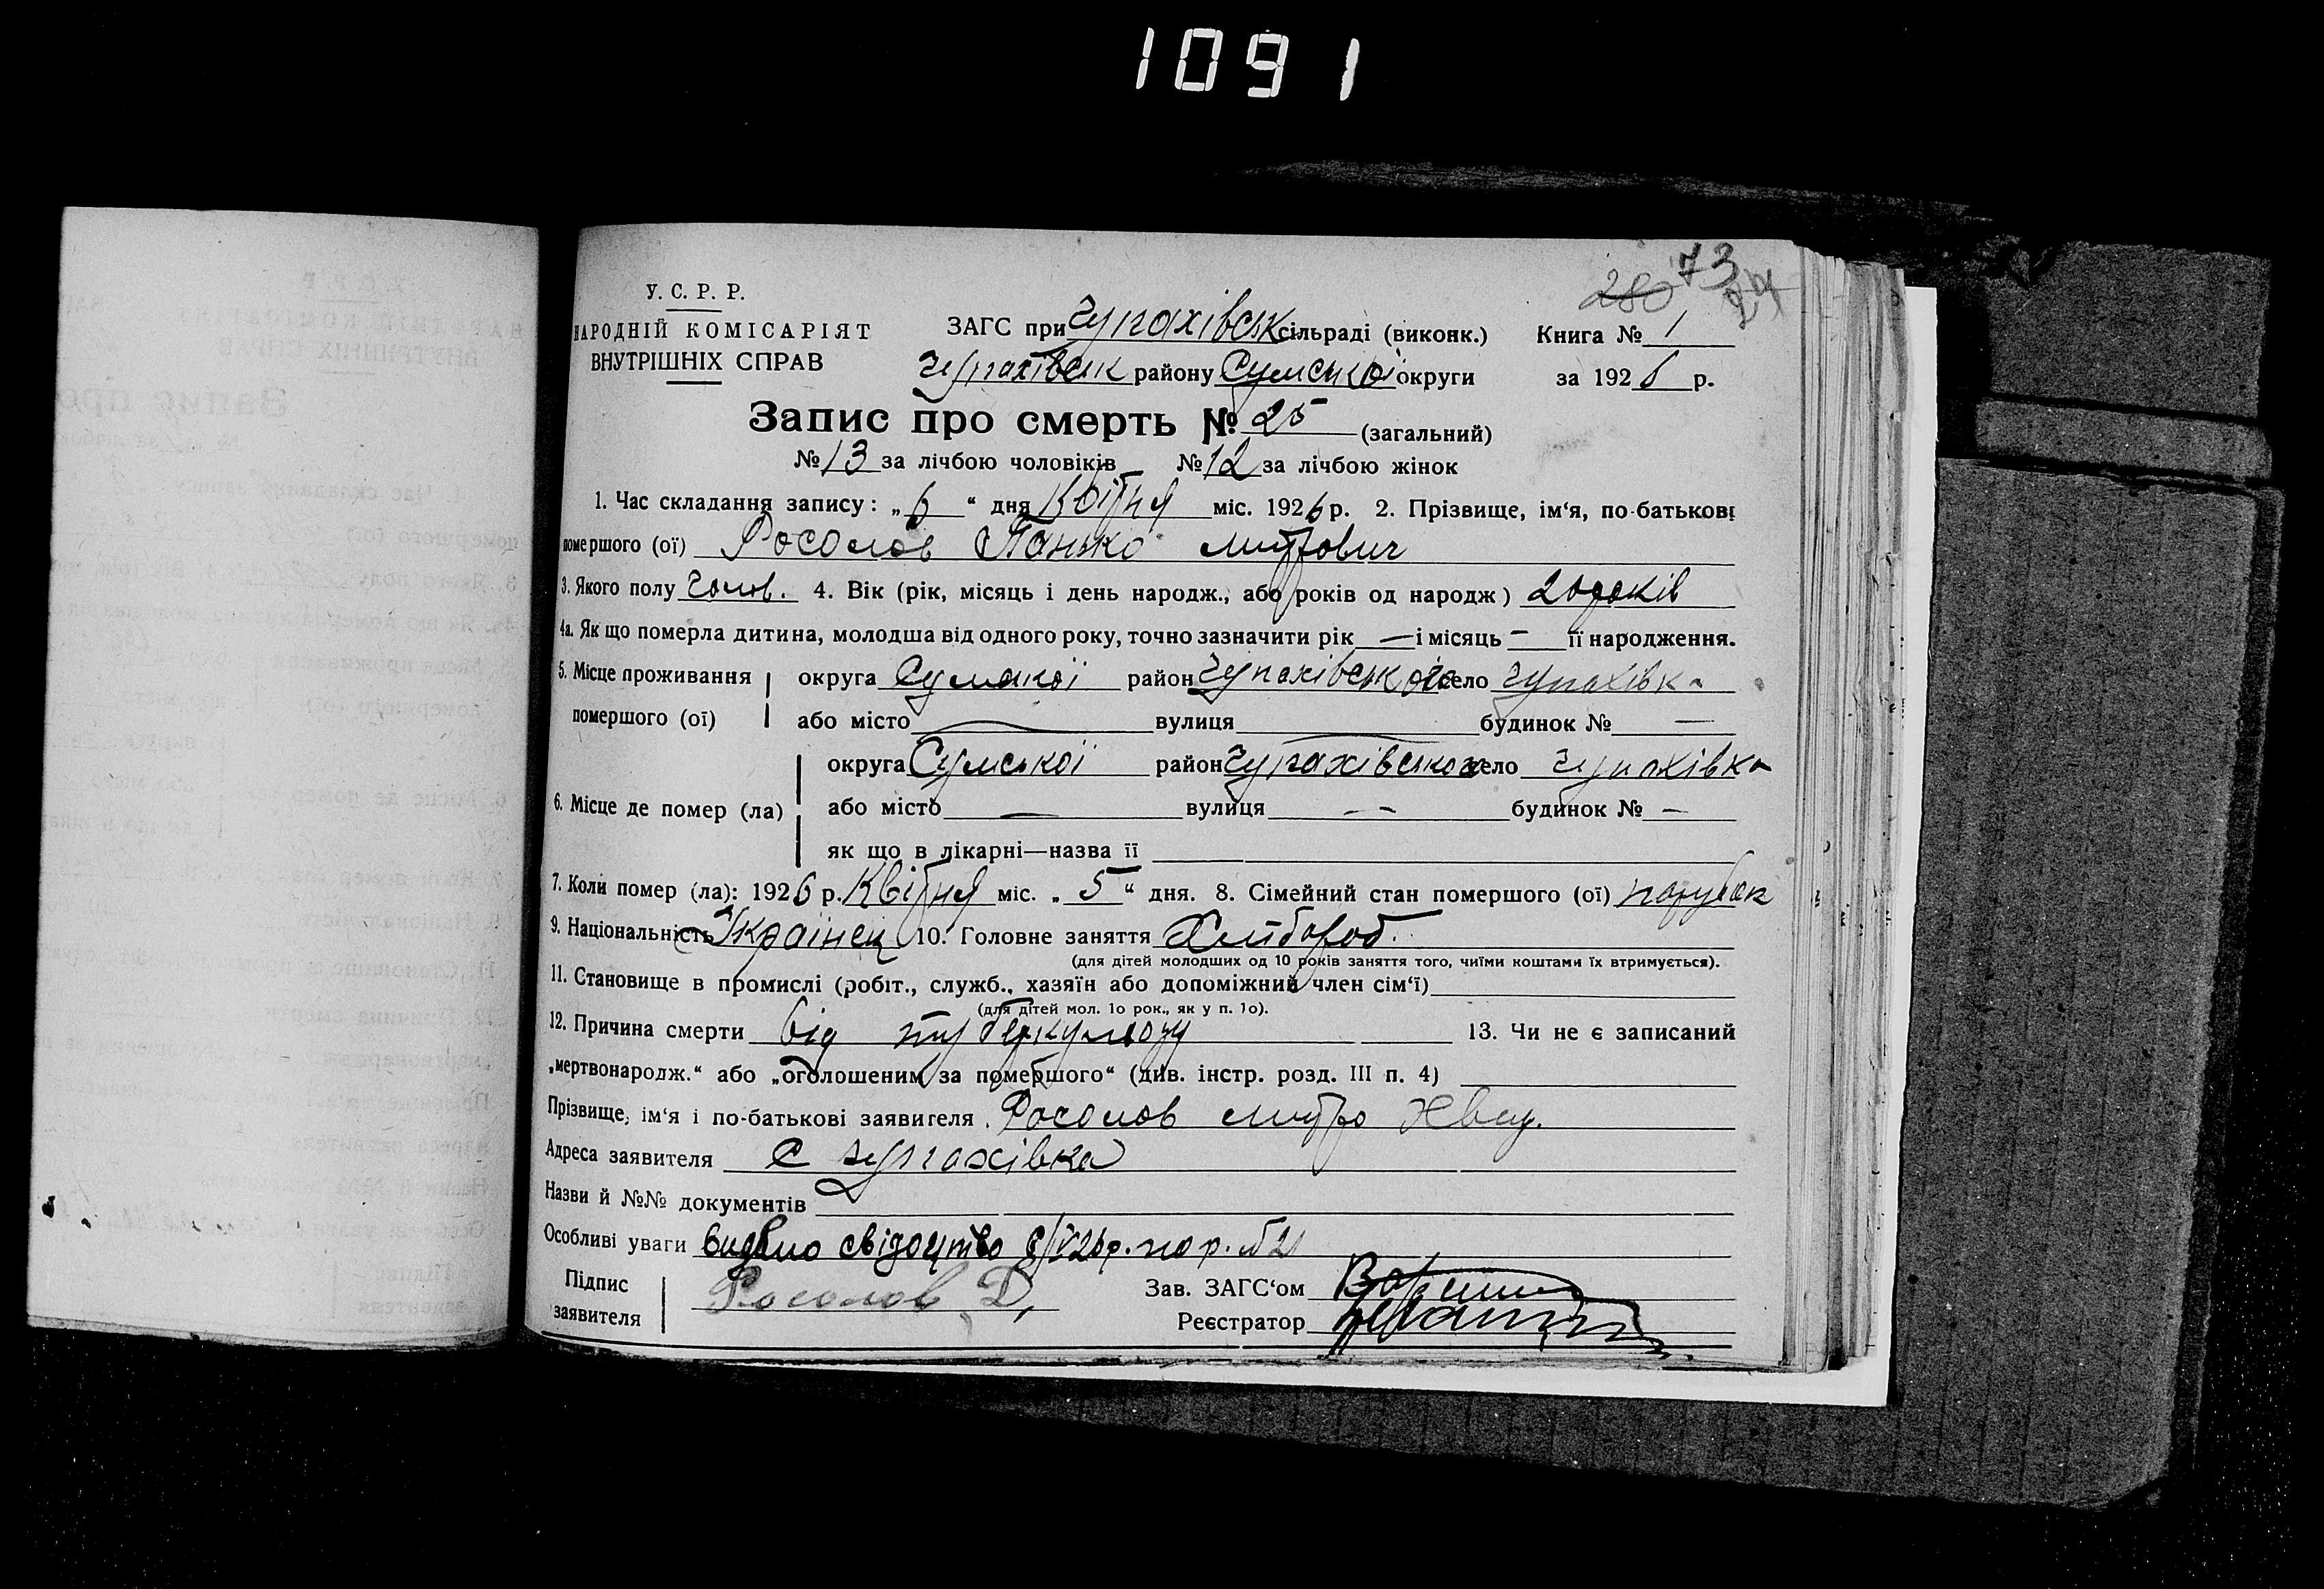 1091
280 73
У. С. Р. Р.
НАРОДНІЙ КОМІСАРІЯТ
ВНУТРІШНІХ СПРАВ
ЗАГС при Чупахівськ сільраді (виконк.) Книга № 1
Чупахівськ району Сумської округи за 1926 р.
Запис про смерть № 25 (загальний)
№ 13 за лічбою чоловіків № 12 за лічбою жінок
1. Час складання запису: „ 6 “ дня Квітня міс. 1926 р. 2. Прізвище, ім‘я, по-батькові
помершого (ої) Росолов Панько Митрович
3. Якого полу Чолов. 4. Вік (рік, місяць і день народж., або років од народж) 20 років
4а. Як що померла дитина, молодша від одного року, точно зазначити рік — і місяць — її народження.
5. Місце проживання округа Сумської район Чупахівського село Чупахівка
помершого (ої) або місто — вулиця будинок № —
округа Сумської район Чупахівського село Чупахівка
6. Місце де помер (ла) або місто — вулиця — — будинок № —
як що в лікарні—назва її
7. Коли помер (ла): 1926 р. Квітня міс. „ 5 “ дня. 8. Сімейний стан помершого (ої) парубок
9. Національність Українец 10. Головне заняття Хлібороб.
(для дітей молодших од 10 років заняття того, чиїми коштами їх втримується).
11. Становище в промислі (робіт., служб., хазяїн або допоміжний член сім‘ї)
(для дітей мол. 1о рок., як у п. 1о).
12. Причина смерти від туберкульозу 13. Чи не є записаний
„мертвонародж.“ або „оголошеним за помершого“ (див. інстр. розд. III п. 4)
Прізвище, ім‘я і по-батькові заявителя. Росолов Митро
Адреса заявителя С Чупахівка
Назви й №№ документів
Особливі уваги видано свідоцтво
Підпис Росолов Д, Зав. ЗАГС‘ом
заявителя Реєстратор